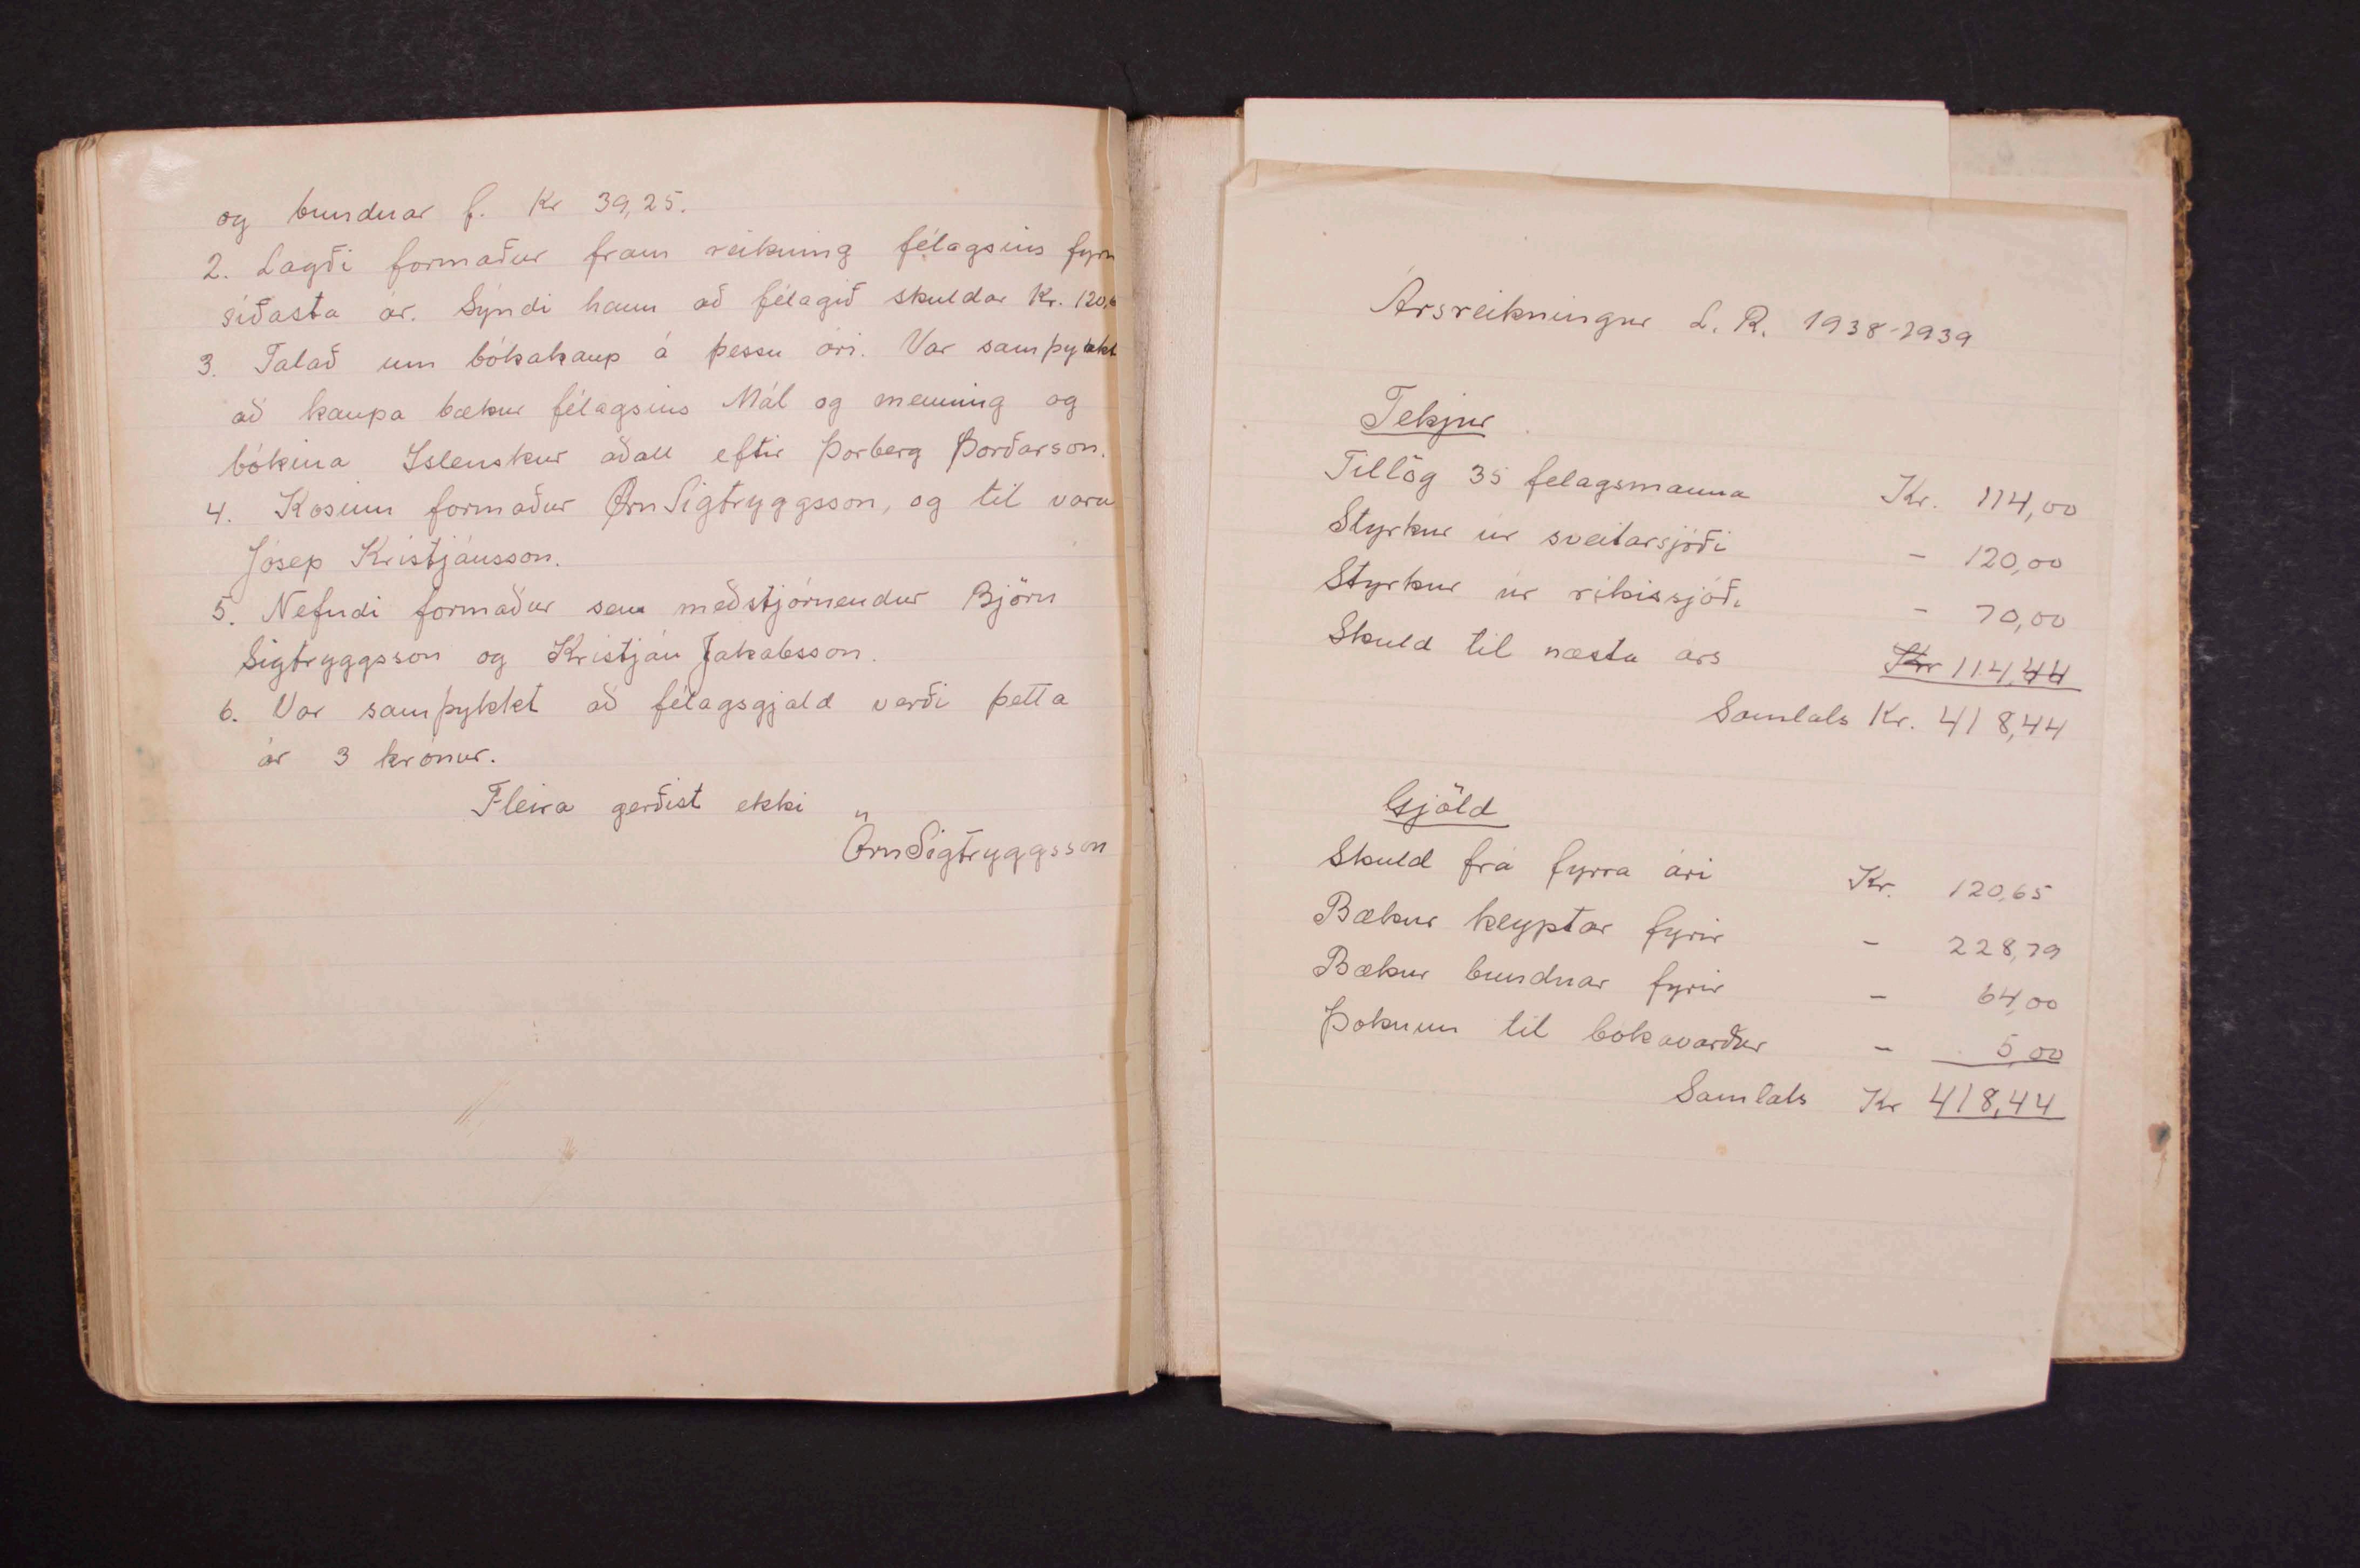 og bundnar f. Kr 39,25.
2. Lagði formaður fram reikning félagsins fyrir
síðasta ár. Sýndi hann að félagið skuldar Kr. 120,6
3. Talað um bókakaup á þessu ári. Var samþykkt
að kaupa bækur félagsins Mál og menning og
bókina Islenskur aðall eftir Þorberg Þorðarson.
4. Kosinn formaður Örn Sigtryggsson, og til vara
Jósep Kristjánsson.
5. Nefndi formaður sem meðstjórnendur Björn
Sigtryggsson og Kristján Jakabsson.
6. Var samþykkt að félagsgjald verði þetta
ár 3 krónur.
Fleira gerðist ekki
Örn Sigtryggsson
Arsreikningur L. R. 1938-1939
Tekjur
Tillög 35 felagsmanna Kr. 114,00
Styrkur úr sveitarsjóði - 120,00
Styrkur úr ríkissjóði - 70,00
Skuld til næsta árs Kr 114,44
Samtals Kr. 418,44
Gjöld
Skuld frá fyrra ári Kr. 120,65
Bækur keyptar fyrir - 228,79
Bækur bundnar fyrir - 64,00
Þoknun til bókavarðar - 5,00
Samtals Kr 418,44